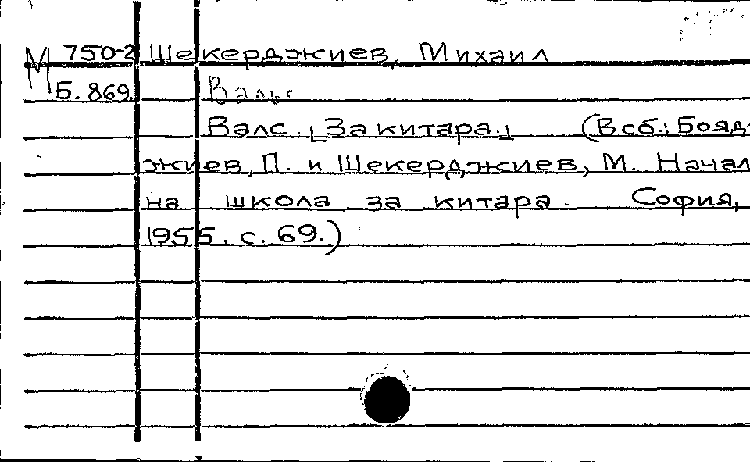 М 750-2 Шекерджиев, Михаил
Б. 869.
Валс. [За китара.] (В сб.: Бояд-
жиев, П. и Шекерджиев, М. Начал
на школа за китара. София,
1955. с. 69.)